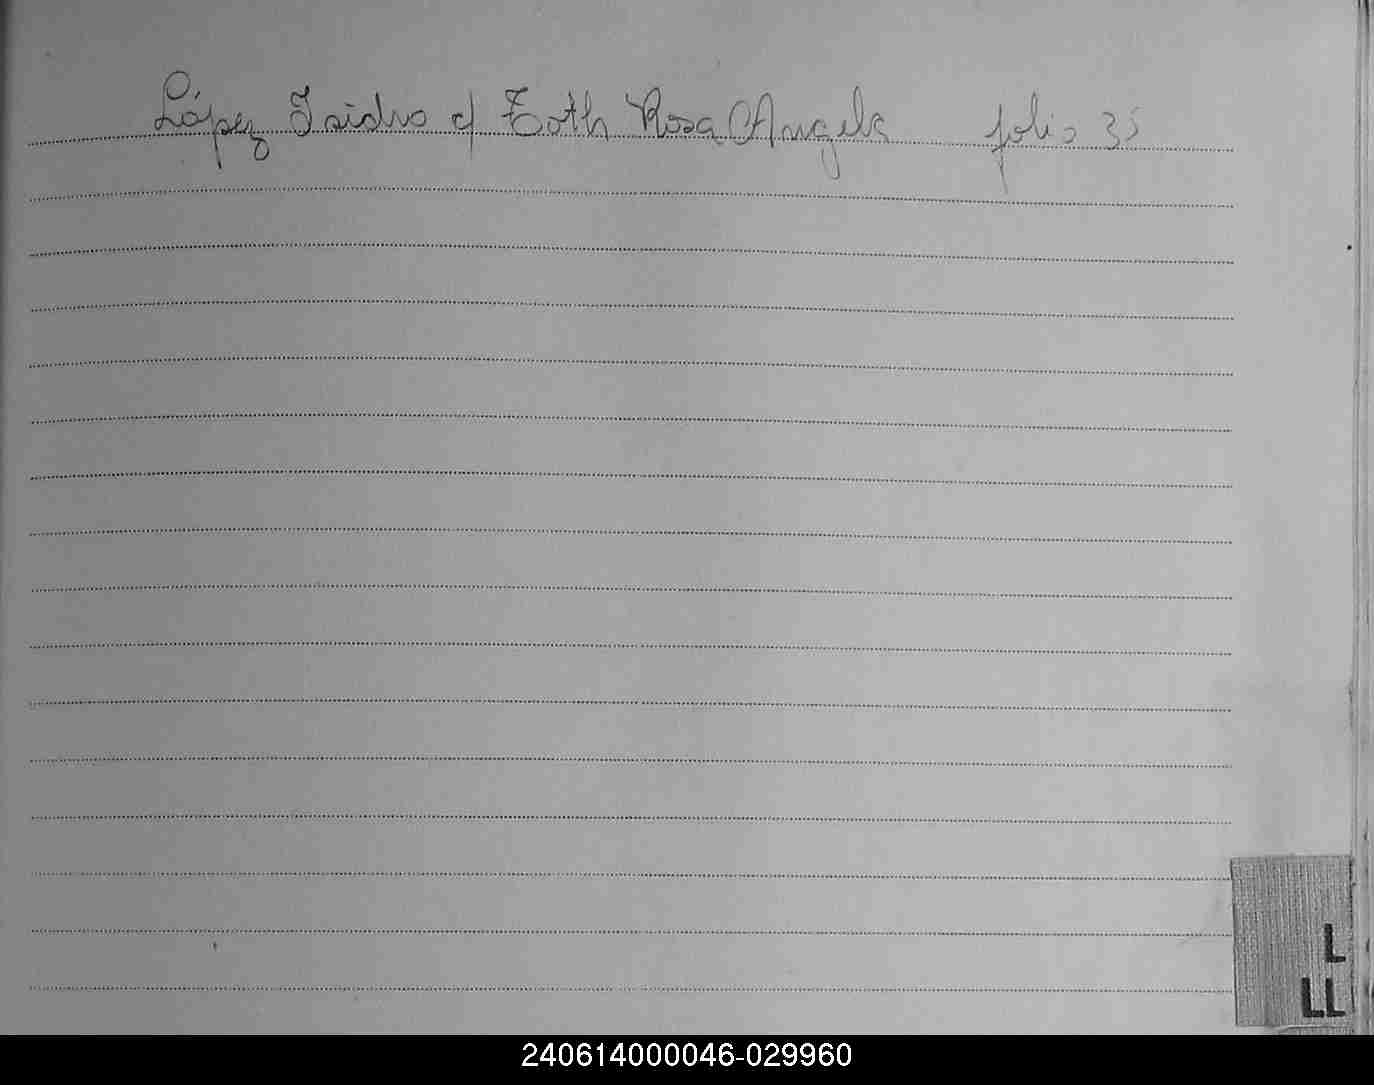 López Isidro c/ Toth Rosa Angela folio 35
L
LL
240614000046-029960